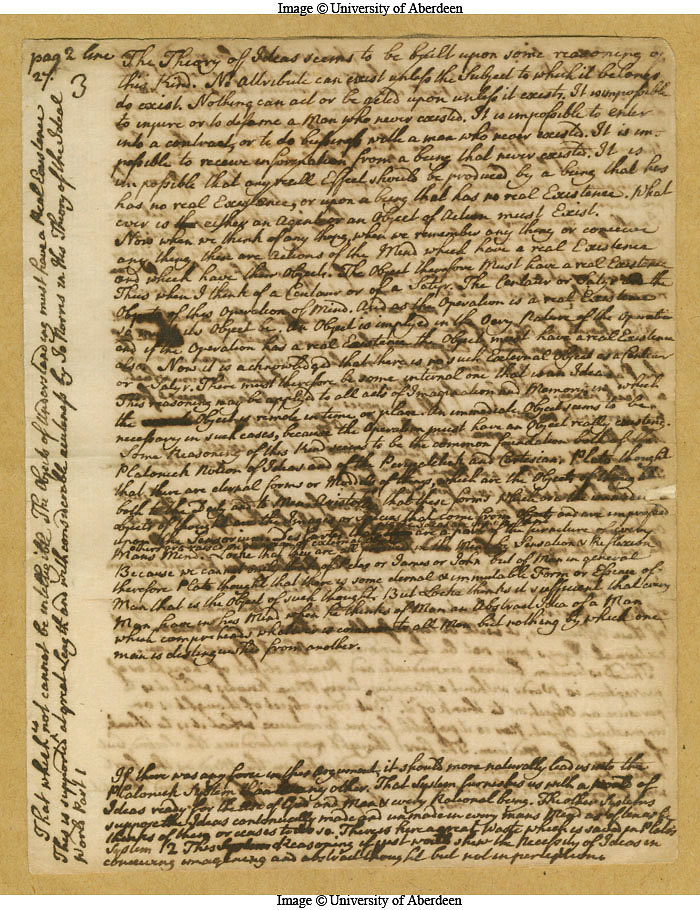 Image © University of Aberdeen
pag 2 line
27.
3
The Theory of Ideas seems to be built upon some reasoning of
this Kind. No attribute can exist unless the Subject to which it belongs
do exist. Nothing can act or be acted upon unless it exists, It is impossible
to injure or to defame a Man who never existed. It is impossible to enter
into a contract, or to do business with a man who never existed. It is im-
possible to receive information from a being that never existed. It is
impossible that any reall Effect should be produced by a being that has
has no real Existence, or upon a being that has no real Existence. What
ever is either an Agent or an Object of Action must Exist.
Now when we think of any thing, when we remember any thing or conceive
any thing, these are Actions of the Mind which have a real Existence
and which have their Objects. The Object therefore Must have a real Existence
Thus when I think of a Centaur or of a Satyr. The Centaur or Satyr the
Object of this Operation of Mind. And as the Operation is a real Existence
so its Object be. An Object is implyed in the Very Nature of the Operation
and if the Operation has a real Existence the Object must have a real Existence
also. Now it is acknowledged that there is no such External Object as a Centaur
or a Satyr. There must therefore be some internal one that is an Idea.
This reasoning may be applied to all acts of Imagination and Memory in which
the Object is remote in time, or place. An immediate Object seems to be
necessary in such cases, because the Operation must have an Object really existing.
Some Reasoning of this Kind seems to be the common foundation both of the
Platonick Notion of Ideas and of the Peripatetick and Cartesian. Plato thought
that there are eternal forms or Models of things, which are the Objects of thought
both to the Deity and to Man. Aristotle that these forms
objects of thought are the Images or Species that come from Objects and are impressed
upon the Sensorium
Mans Mind. Locke that they are all by Sensation & Reflexion
Because we can think not of Peter or James or John but of Man in general
therefore Plato thought that there is some eternal & immutable Form or Essence of
Man that is the Object of such thought. But Locke thinks it sufficient that every
Man have in his Mind when he thinks of Man an Abstract Idea of a Man
which comprehends whatever is common to all Men but nothing by which one
man is distinguished from another.
If there was any force in this Argument, it should more naturally lead us into the
Platonick System than any other. That System furnishes us with a World of
Ideas ready for the use of God and Man & every Rational being. The other Systems
suppose the Ideas continually made and unmade in every mans Mind as often as he
thinks of them or ceases to do so. There is here a great Waste which is saved in Plato's
System 2 This Reasoning if just would shew the Necessity of Ideas in
conceiving imagening and abstract thought but not in perception.
That which is not cannot be intelligible The Objects of Understanding must have a Real Existence
This is supported at great length and with considerable acuteness by Jo Norris in his Theory of the Ideal
World Part 1
Image © University of Aberdeen